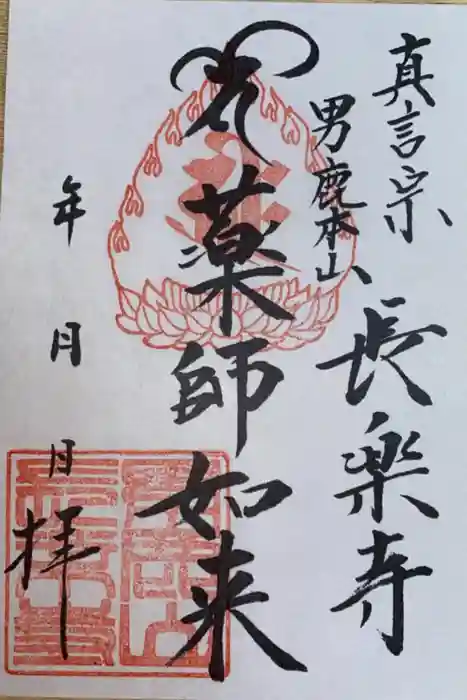 真言宗
男鹿本山
長楽寺
薬師如来
年 月 日 拝